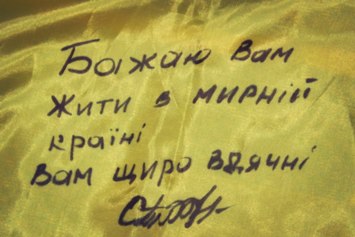 Бажаю Вам
жити в мирній
країні
Вам щиро вдячні